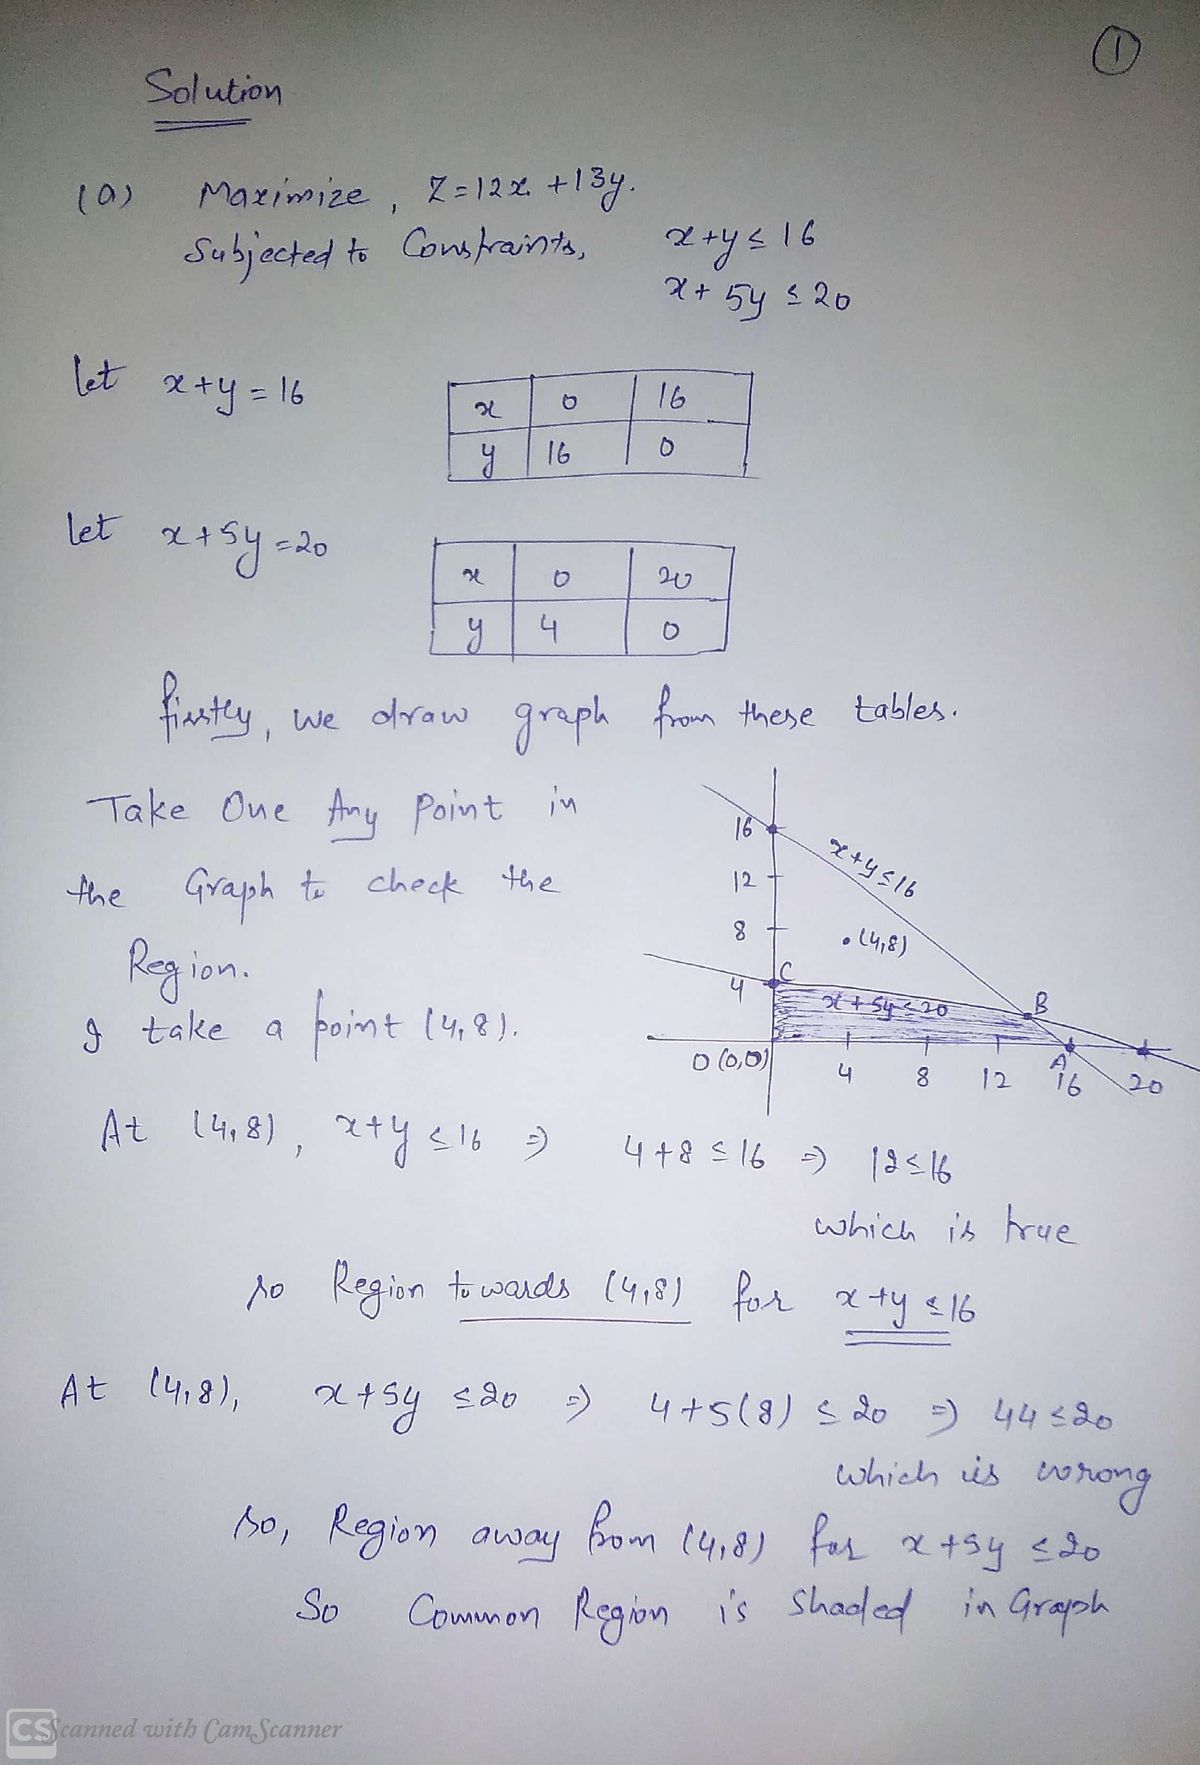 1
Solution
(a) Maximize, Z=12x+13y.
Subjected to Constraints, x+y≤16
x+5y≤20
let x+y=16
x 0 16
y 16 0
let x+5y=20
x 0 20
y 4 0
firstly, we draw graph from these tables.
Take One Any Point in
the Graph to check the
Region.
I take a point (4,8).
16
x+y≤16
12
8
.(4,8)
4
C
x+5y≤20
B
O(0,0)
4
8
12
A
16
20
At (4,8), x+y≤16 ⇒ 4+8≤16 ⇒ 12≤16
which is true
so Region towards (4,8) for x+y≤16
At (4,8), x+5y≤20 ⇒ 4+5(8)≤20 ⇒ 44≤20
which is wrong
so, Region away from (4,8) for x+5y≤20
So Common Region is Shaded in Graph
CS Scanned with CamScanner